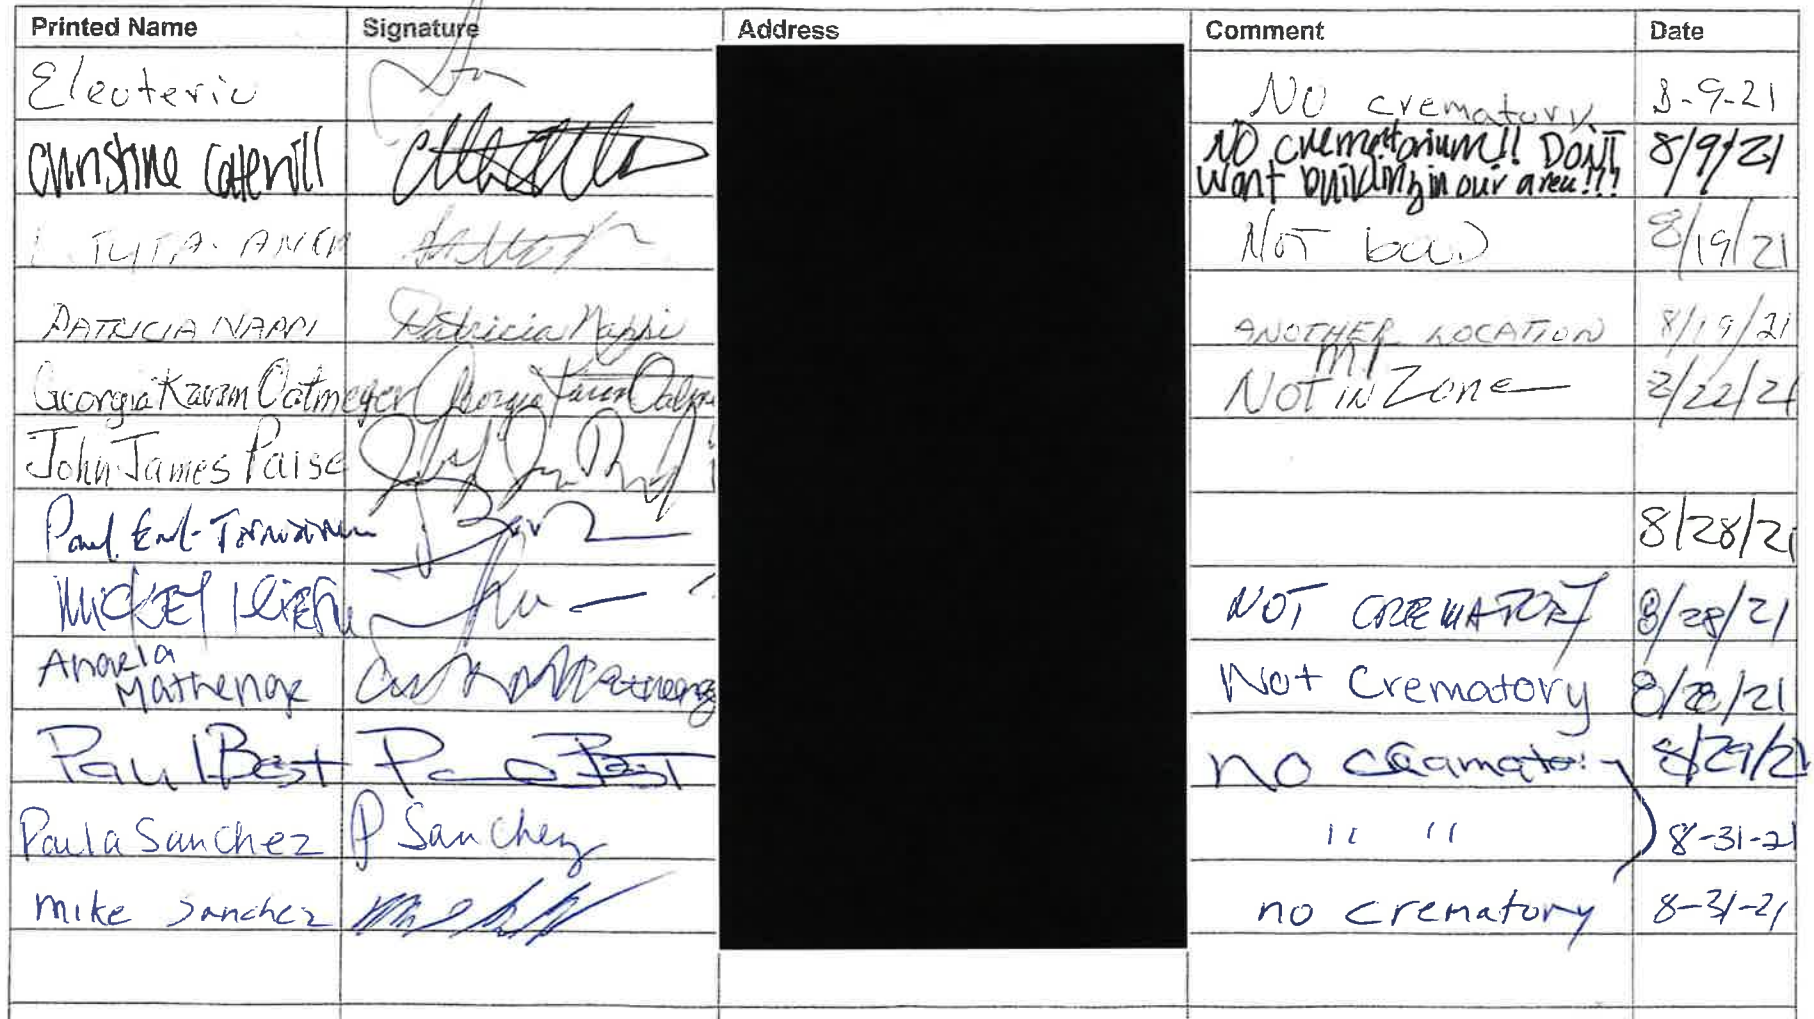 Printed Name Signature Address Comment Date
Eleuterio No crematory 8-9-21
Christine NO crematorium!! DON'T 8/9/21
want building in our area!!!
NOT bad 8/19/21
PATRICIA NAPPI Patricia Nappi ANOTHER LOCATION 8/19/21
Georgia Karam Oatmeyer Georgia Karam NOT IN MY Zone /22/21
John James Paise
Paul 8/28/21
MICKEY NOT CREMATORY 8/28/21
Angela Not Crematory 8/28/21
Mathenge
Paul Best Paul Best no 8/29/21
Paula Sanchez P Sanchez " " 8-31-21
Mike Sanchez no crematory 8-31-21